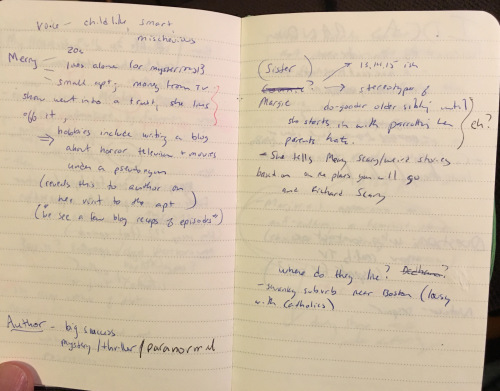 voice - childlike, smart
mischevious
Merry
20s
lives alone (or
small apt, money from TV
show went into a trust, she lives
off it,
→ hobbies include writing a blog
about horror television + movies
under a pseudonym
(reveals this to author on
her visit to the apt)
see a few blog recaps of episodes
Author - big success
mystery/thriller/paranormal
(Sister)
? → 13, 14, 15 ish
Margie → stereotype of
do-gooder older sibling until
she starts in with parroting her
parents hate.
ch?
- She tells Merry scary/weird stories
based on
and Richard Scarry
where do they live?
- seventy suburb near Boston (lousy
with Catholics)